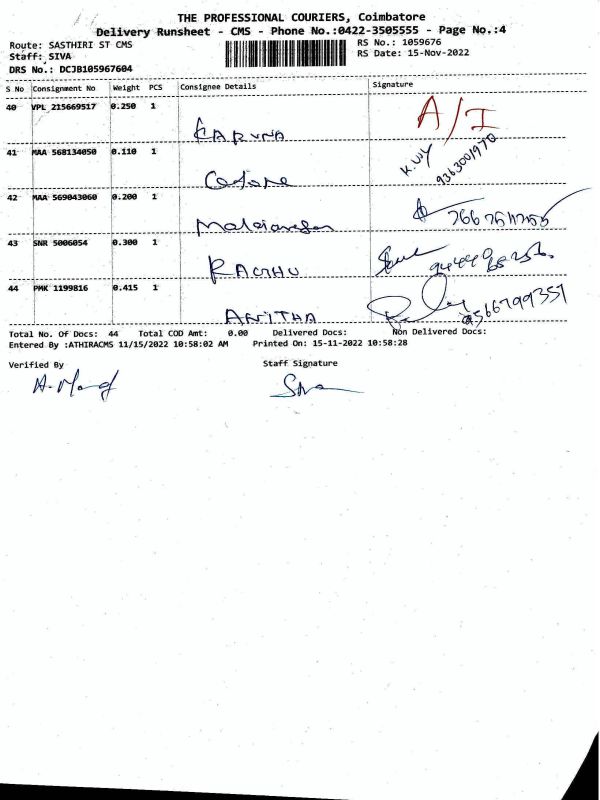 THE PROFESSIONAL COURIERS, Coimbatore
Delivery Runsheet - CMS - Phone No.:0422-3505555 - Page No.:4
Route: SASTHIRI ST CMS RS No.: 1059676
Staff: SIVA RS Date: 15-Nov-2022
DRS No.: DCJB105967604
S No Consignment No Weight PCS Consignee Details Signature
40 VPL 215669517 0.250 1 A/I
KARUNA
41 MAA 568134050 0.110 1 9363001970
42 MAA 569043060 0.200 1
43 SNR 5006054 0.300 1
RAGHU
44 PMK 1199816 0.415 1 9566799357
ANITHA
Total No. Of Docs: 44 Total COD Amt: 0.00 Delivered Docs: Non Delivered Docs:
Entered By :ATHIRACMS 11/15/2022 10:58:02 AM Printed On: 15-11-2022 10:58:28
Verified By Staff Signature